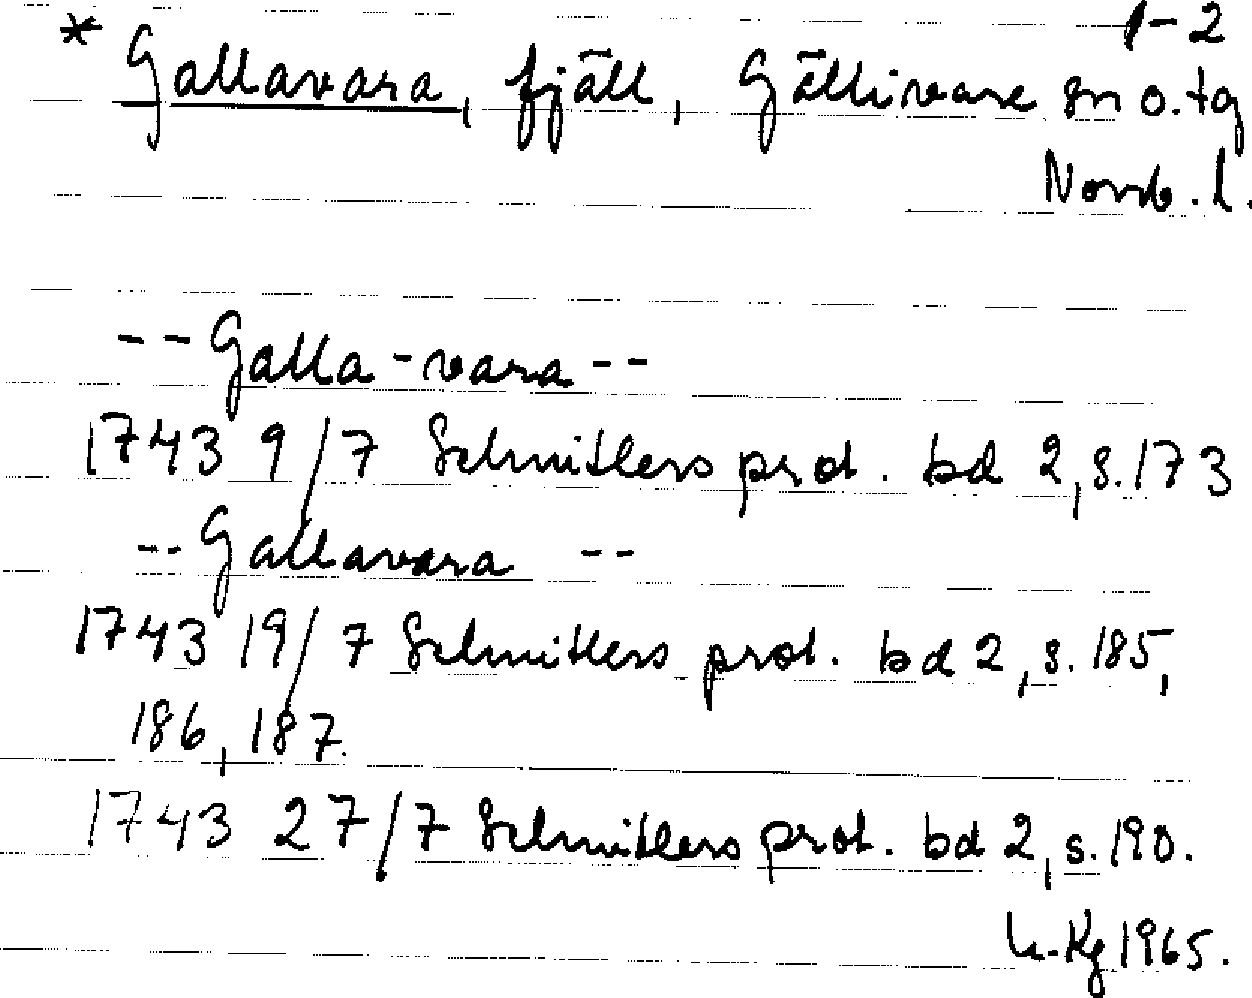 1-2
* Gallavara, fjäll, Gällivare sn o. tg
Norrb. l.
-- Galla-vara --
1743 9/7 Schnitlers prot. bd 2, s. 173
-- Gallavara --
1743 19/7 Schnitlers prot. bd 2, s. 185,
186, 187.
1743 27/7 Schnitlers prot. bd 2, s. 190.
Kg 1965.